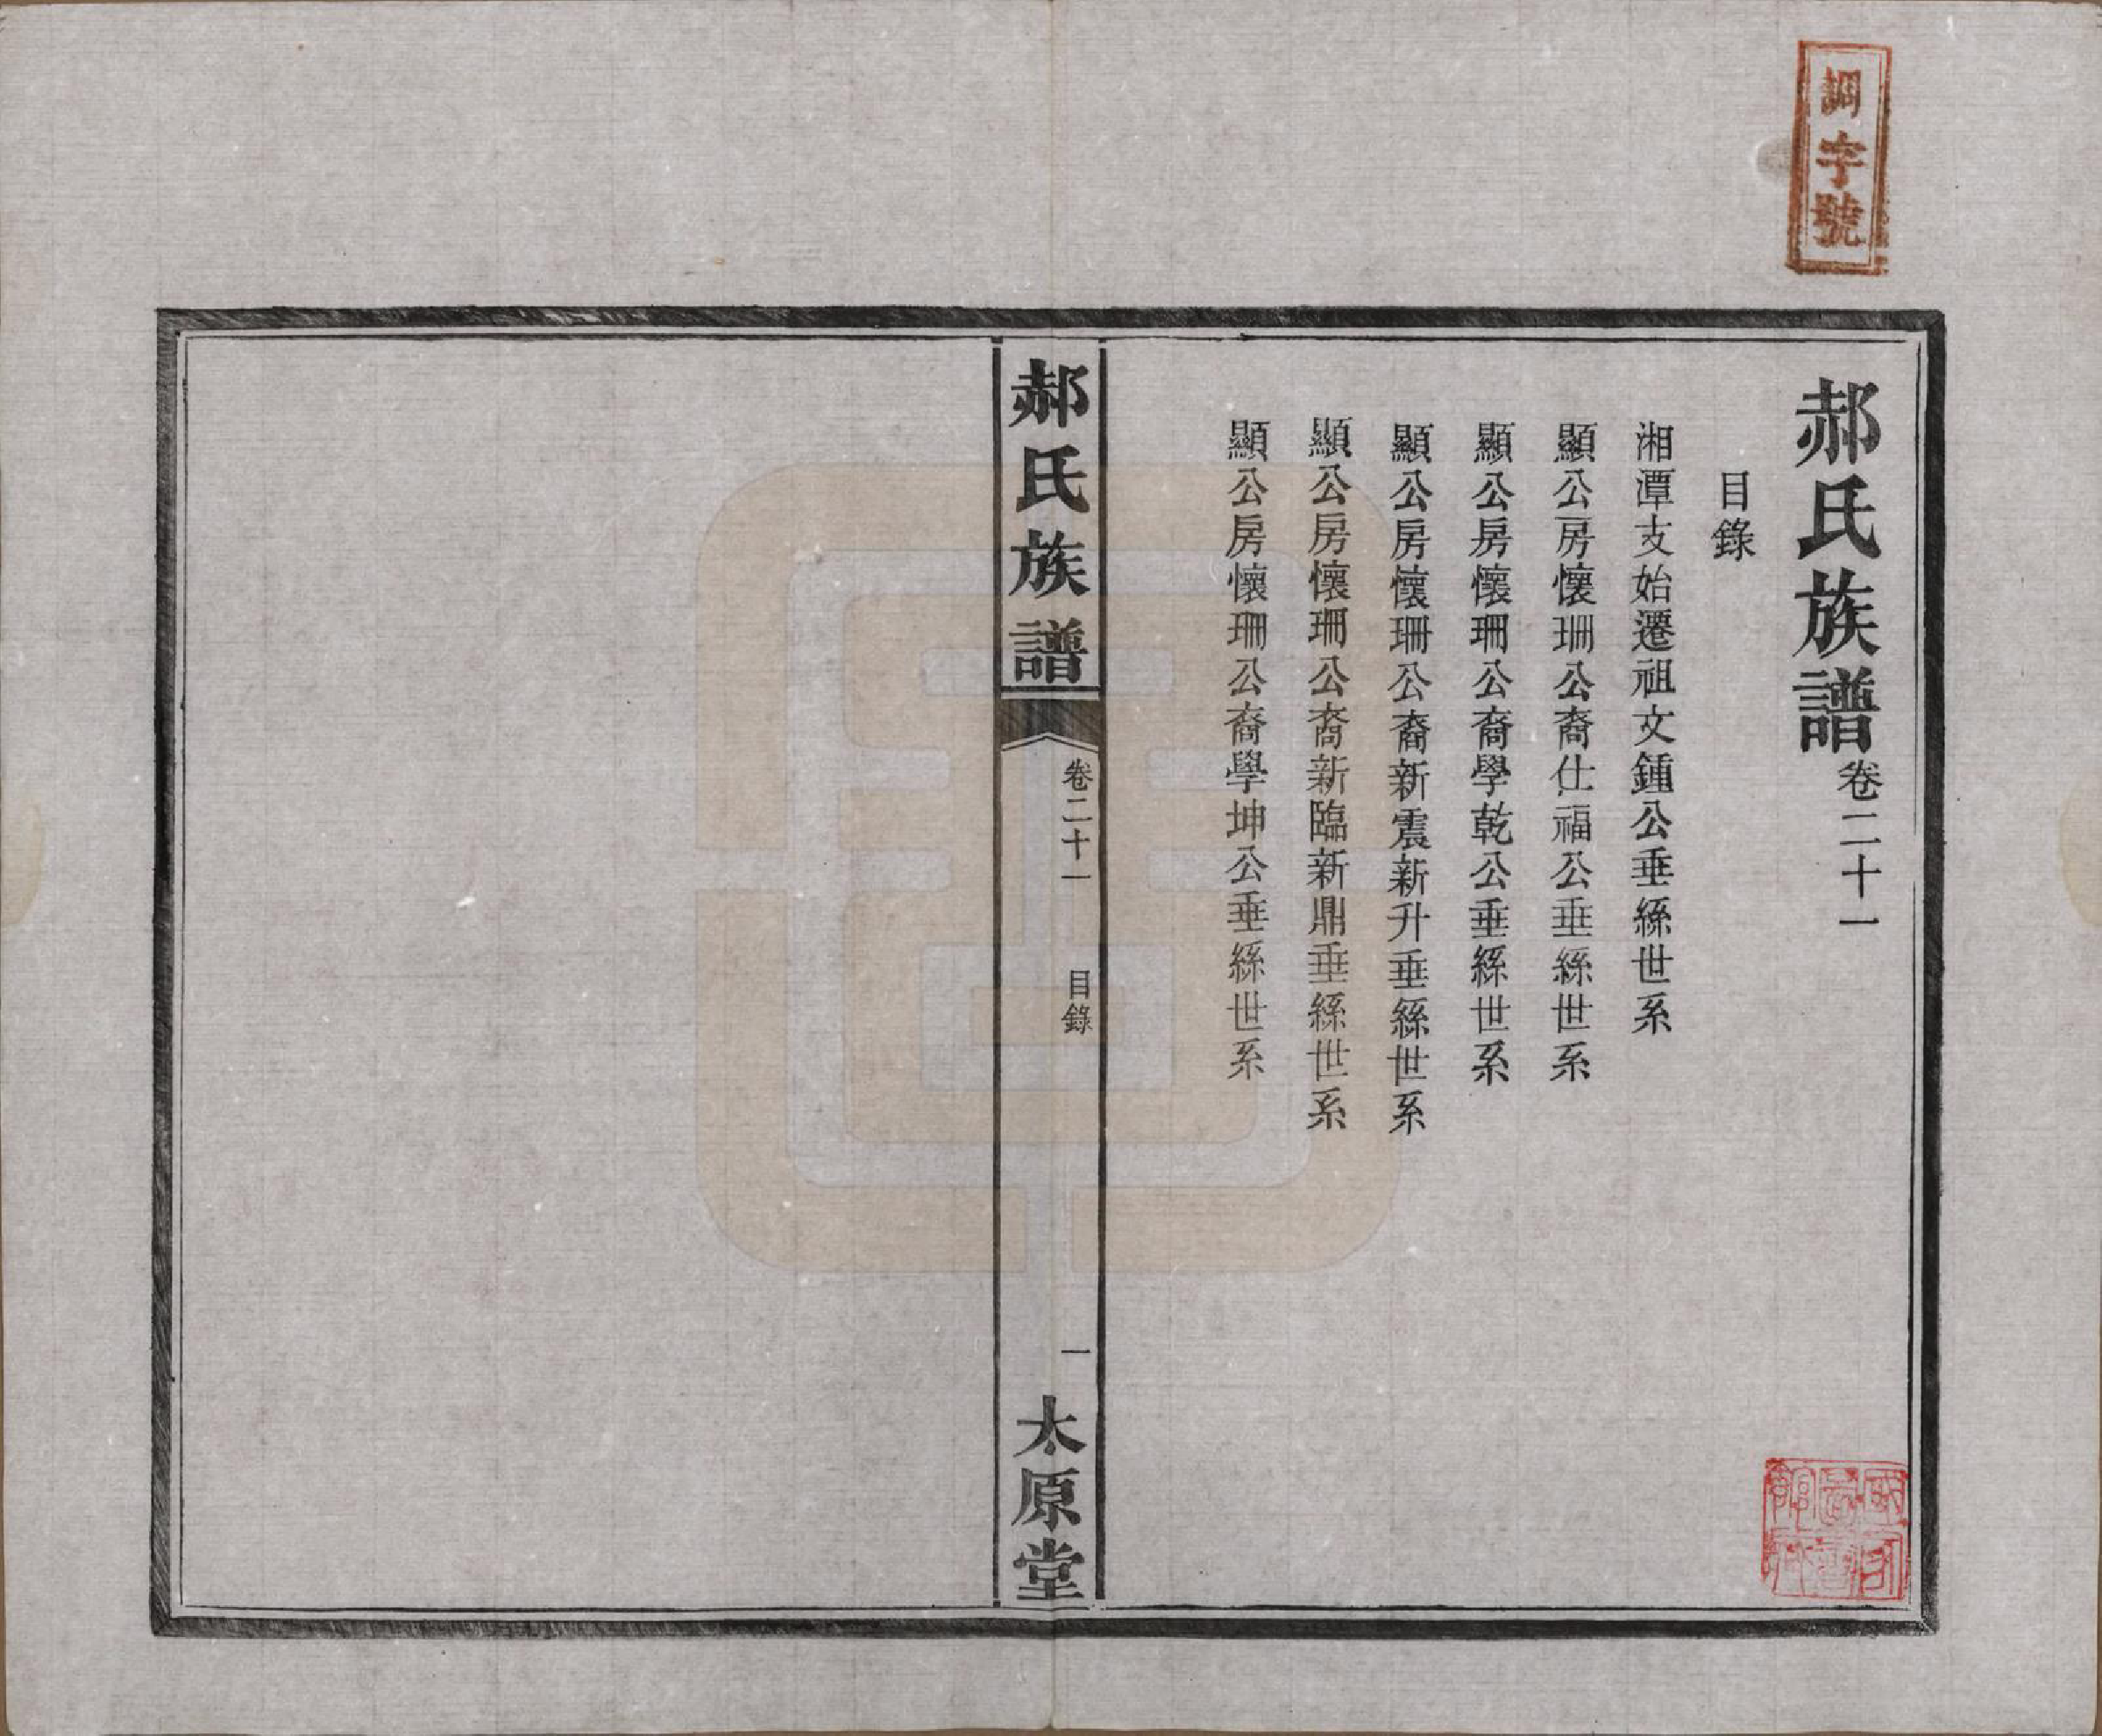 調字號
郝氏族譜卷二十一
目錄
湘潭支始遷祖文鍾公垂絲世系
顯公房懷珊公裔仕福公垂絲世系
顯公房懷珊公裔學乾公垂絲世系
顯公房懷珊公裔新震新升垂絲世系
顯公房懷珊公裔新臨新鼎垂絲世系
顯公房懷珊公裔學坤公垂絲世系
郝氏族譜
卷二十一
目錄
一
太原堂